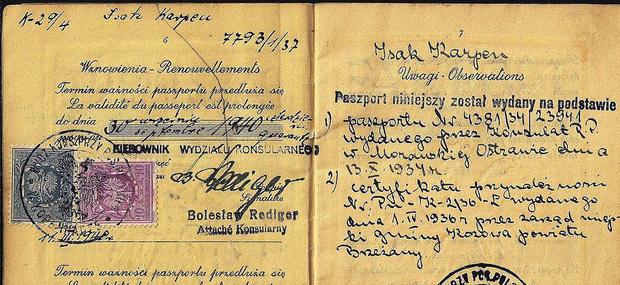 K-29/4 Isak Karpen
6
7793/1/37
Wznowienia - Renouvellements
Termin ważności paszportu przedłuża się
La validité du passeport est prolongée
do dnia 30 września /1940
septembre
KIEROWNIK WYDZIAŁU KONSULARNEGO
Signature
Bolesław Rediger
Attaché Konsularny
Termin ważności paszportu przedłuża się
La validité du passeport est prolongée
7
Isak Karpen
Uwagi - Observations
Paszport niniejszy został wydany na podstawie
1) paszportu Nr. 4381/34/23941
wydanego przez Konsulat R.P.
w Morawskiej Ostrawie dnia
13.X 1934 r.
2) certyfikatu przynależności
wydanego
dnia 1.IV 1936 r przez zarząd miej-
ski gminy Kozowa powiatu
Brzeżany.